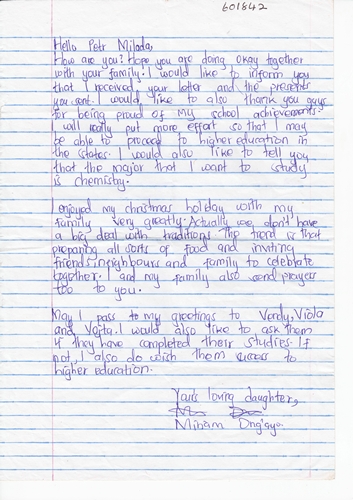 601842
Hello Petr Milada,
How are you? Hope you are doing okay together
with your family. I would like to inform you
that I received your letter and the presents
you sent. I would like to also thank you guys
for being proud of my school achievements.
I will really put more effort so that I may
be able to proceed to higher education in
the states. I would also like to tell you
that the major that I want to study
is chemistry.
I enjoyed my christmas holiday with my
family very greatly. Actually we don't have
a big deal with traditions. The trend is that
preparing all sorts of food and inviting
friends, neighbours and family to celebrate
together. I and my family also send prayers
too to you.
May I pass to my greetings to Verdy, Viola
and I would also like to ask them
if they have completed their studies. If
not, I also do wish them success to
higher education.
Yours loving daughter,
Miriam Ong'aya